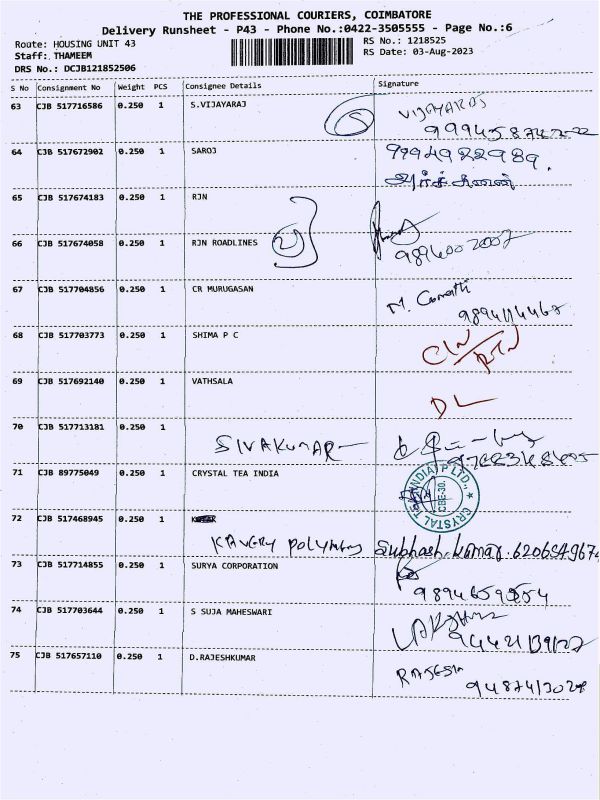 THE PROFESSIONAL COURIERS, COIMBATORE
Delivery Runsheet - P43 - Phone No.:0422-3505555 - Page No.:6
Route: HOUSING UNIT 43 RS No.: 1218525
Staff: THAMEEM RS Date: 03-Aug-2023
DRS No.: DCJB121852506
S No Consignment No Weight PCS Consignee Details Signature
63 CJB 517716586 0.250 1 S.VIJAYARAJ
64 CJB 517672902 0.250 1 SAROJ 9994922989.
65 CJB 517674183 0.250 1 RJN
66 CJB 517674058 0.250 1 RJN ROADLINES 9894002007
67 CJB 517704856 0.250 1 CR MURUGASAN M. Gomathi
68 CJB 517703773 0.250 1 SHIMA P C
69 CJB 517692140 0.250 1 VATHSALA DL
70 CJB 517713181 0.250 1
SIVAKUMAR
71 CJB 89775049 0.250 1 CRYSTAL TEA INDIA CRYSTAL TEA (INDIA) P LTD., CBE-30.
72 CJB 517468945 0.250 1
KAVERY POLYMERS Subhash kumar.
73 CJB 517714855 0.250 1 SURYA CORPORATION
74 CJB 517703644 0.250 1 S SUJA MAHESWARI
75 CJB 517657110 0.250 1 D.RAJESHKUMAR RAJESH